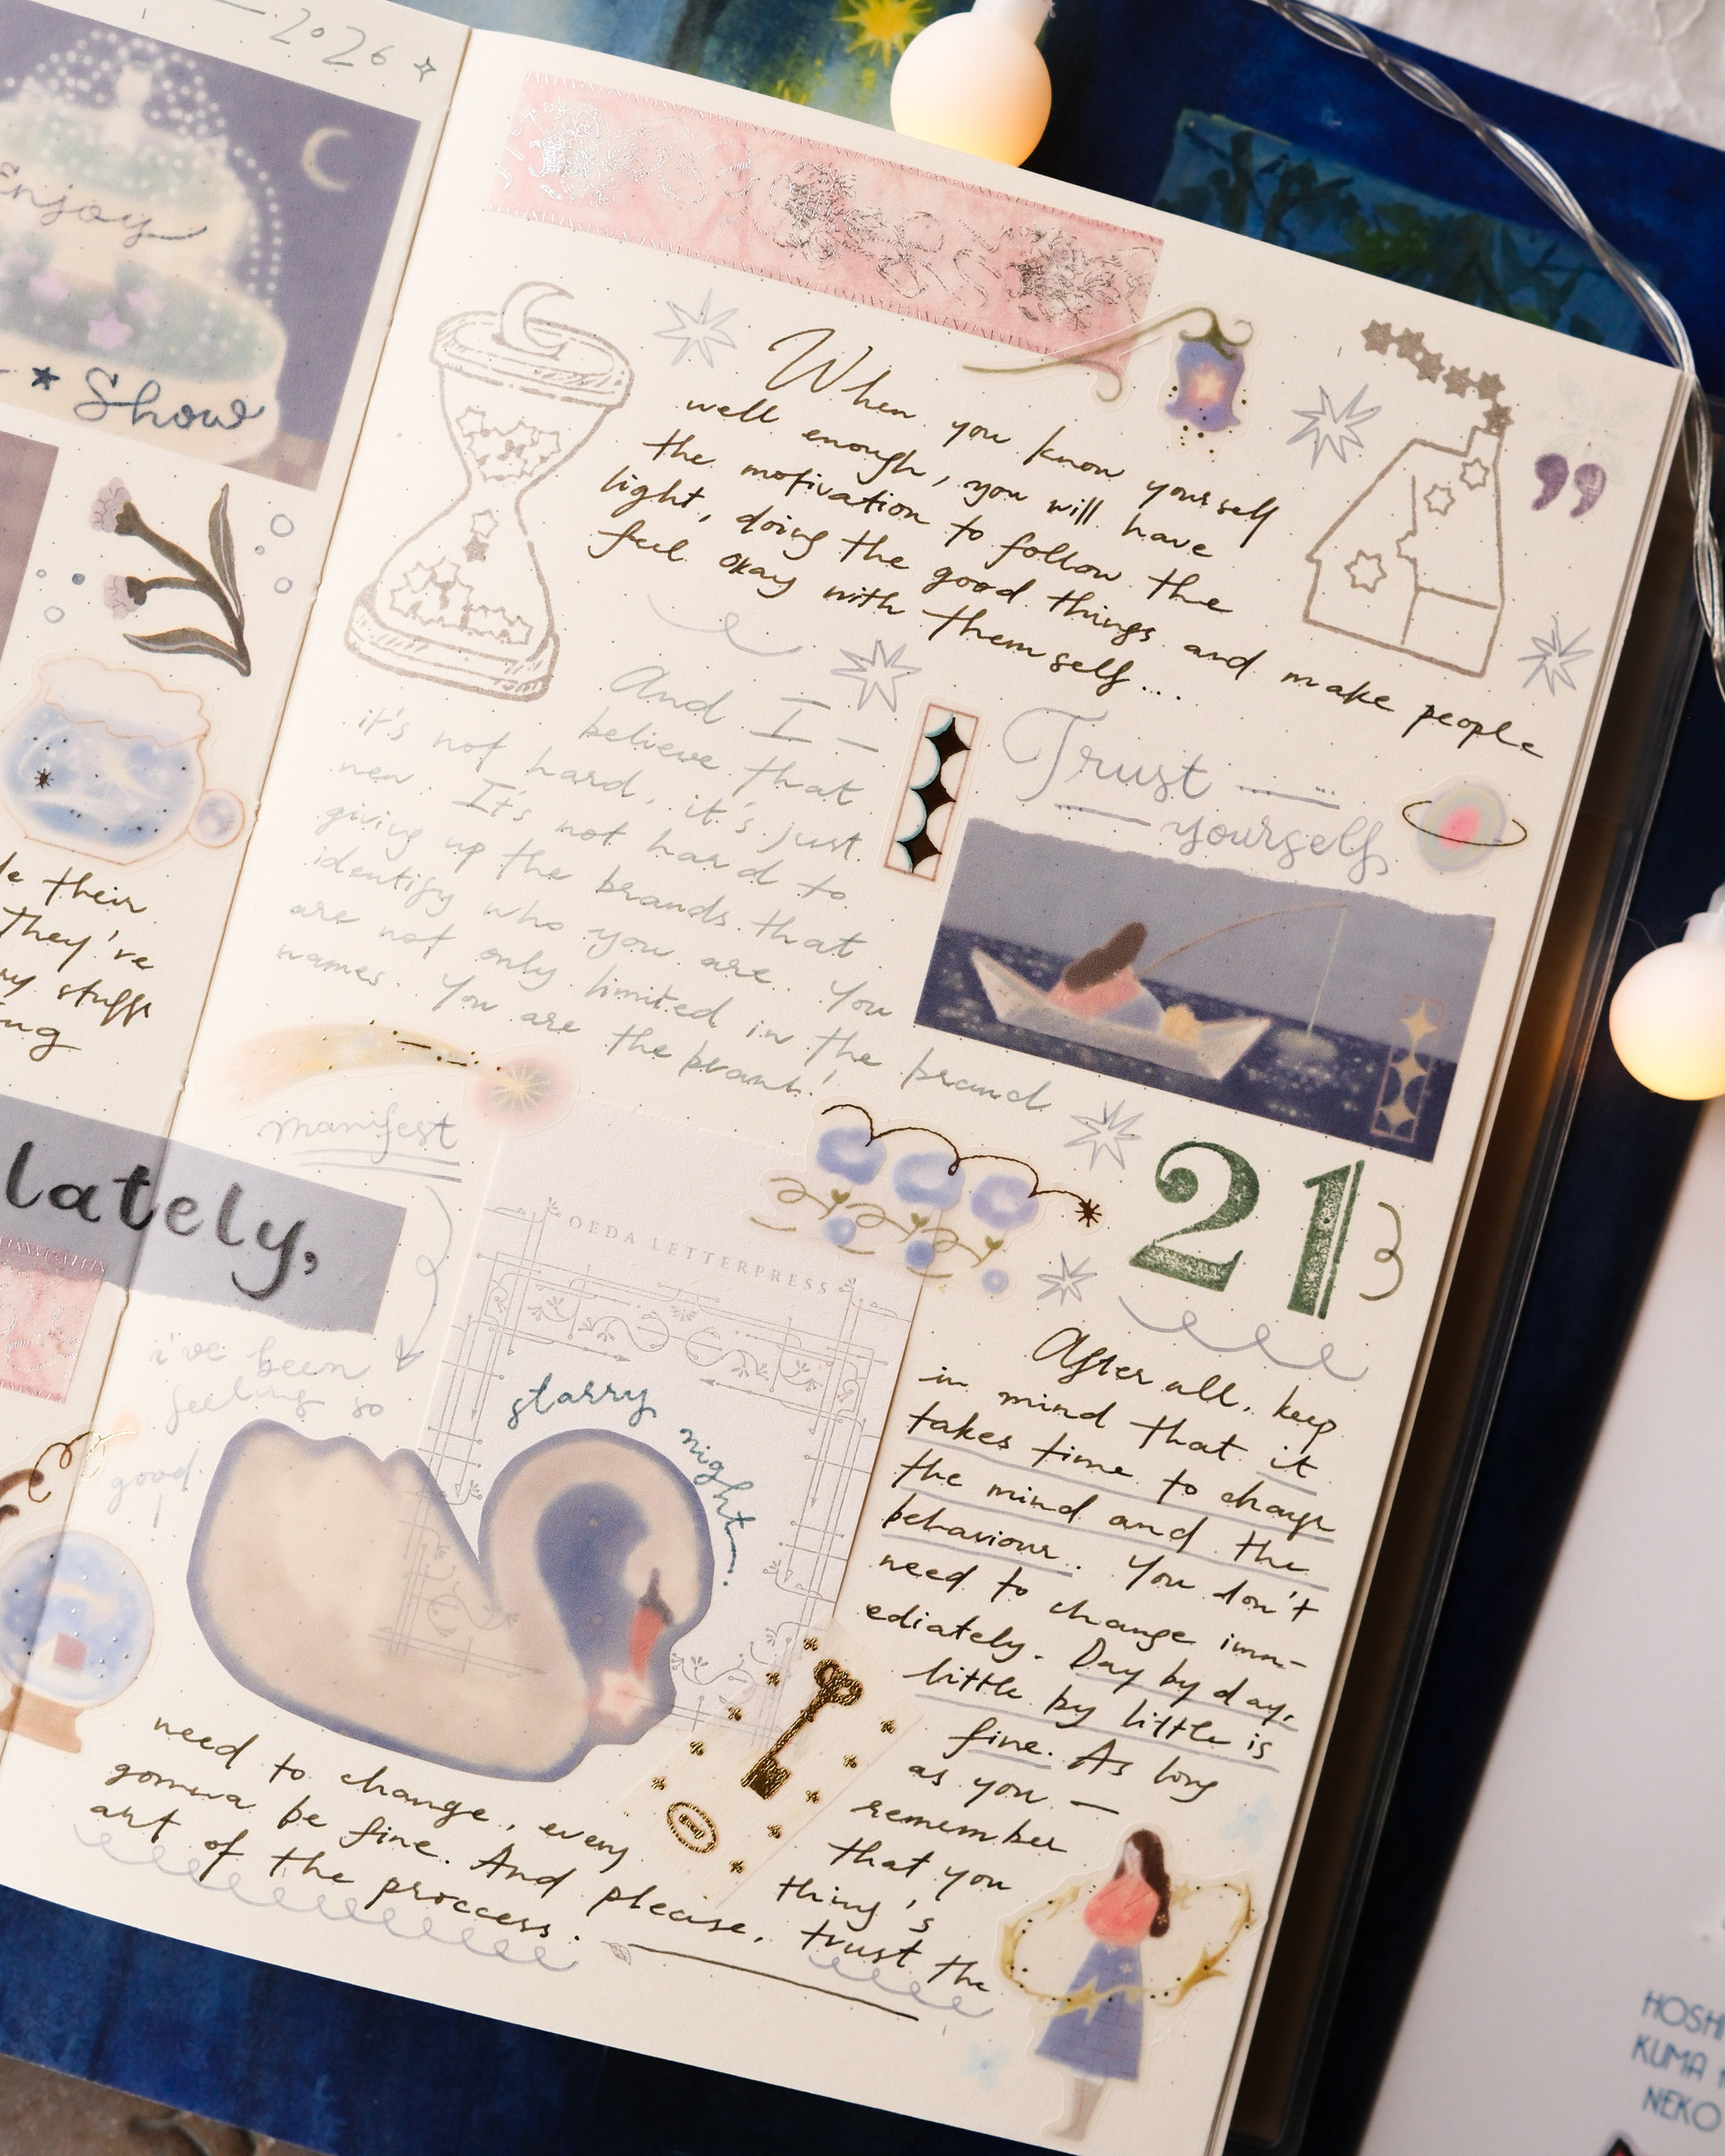 2026
Enjoy
Show
When you know yourself
well enough, you will have
the motivation to follow the
light, doing the good things and make people
feel okay with themself...
”
And I —
believe that
it's not hard, it's just
new. It's not hard to
giving up the brands that
identify who you are. You
are not only limited in the brand
names. You are the brand!
Trust
yourself
le their
They've
ny stuffs
ng
manifest
lately,
i've been
feeling so
good
!
OEDA LETTERPRESS
starry night
21
After all, keep
in mind that it
takes time to change
the mind and the
behaviour. You don't
need to change imm-
ediately. Day by day,
little by little is
fine. As long
as you —
remember
that you
need to change, every thing's
gonna be fine. And please, trust the
art of the proccess.
HOSH
KUMA
NEKO